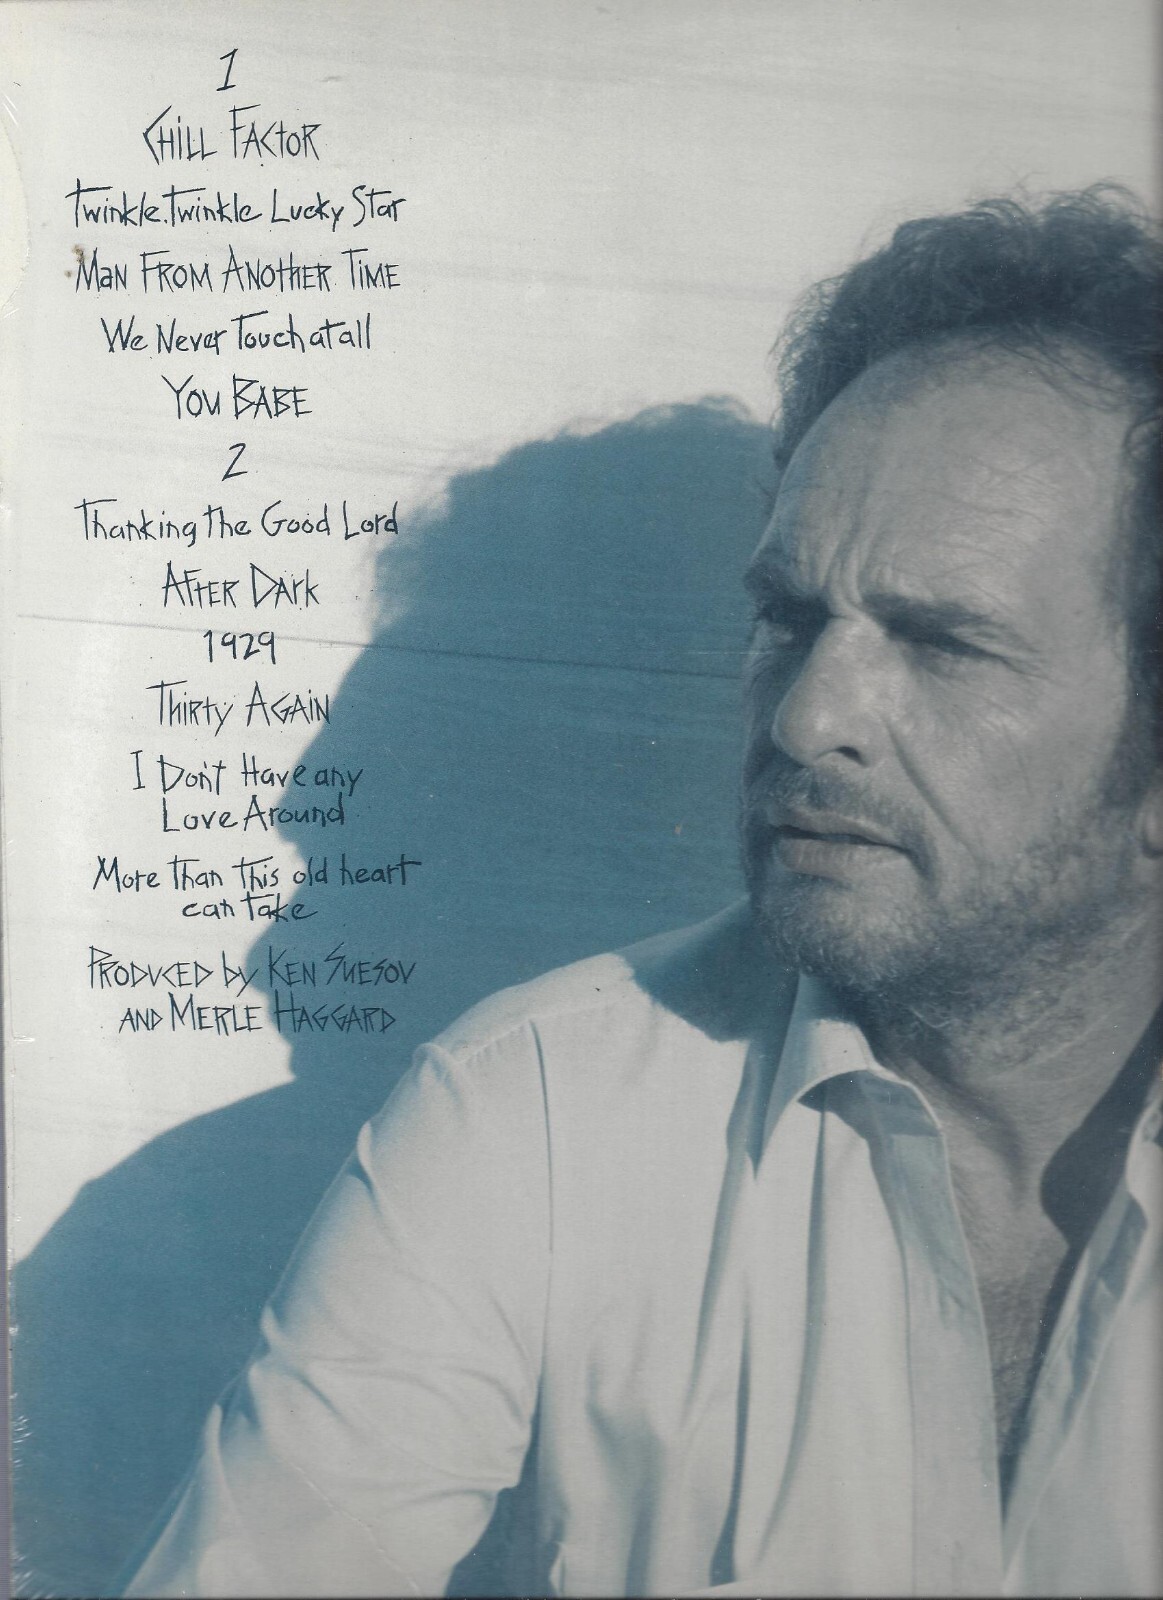 1
CHiLL FACtOR
Twinkle, Twinkle Lucky Star
Man FROM ANOtHER TiME
We Never Touch at all
YOU BABE
2
Thanking the Good Lord
AFtER DArk
1929
THiRty AGAiN
I Don't Have any
Love Around
More Than this old heart
can Take
PRODUCED by KEN SUESOV
AND MERLE HAGGARD